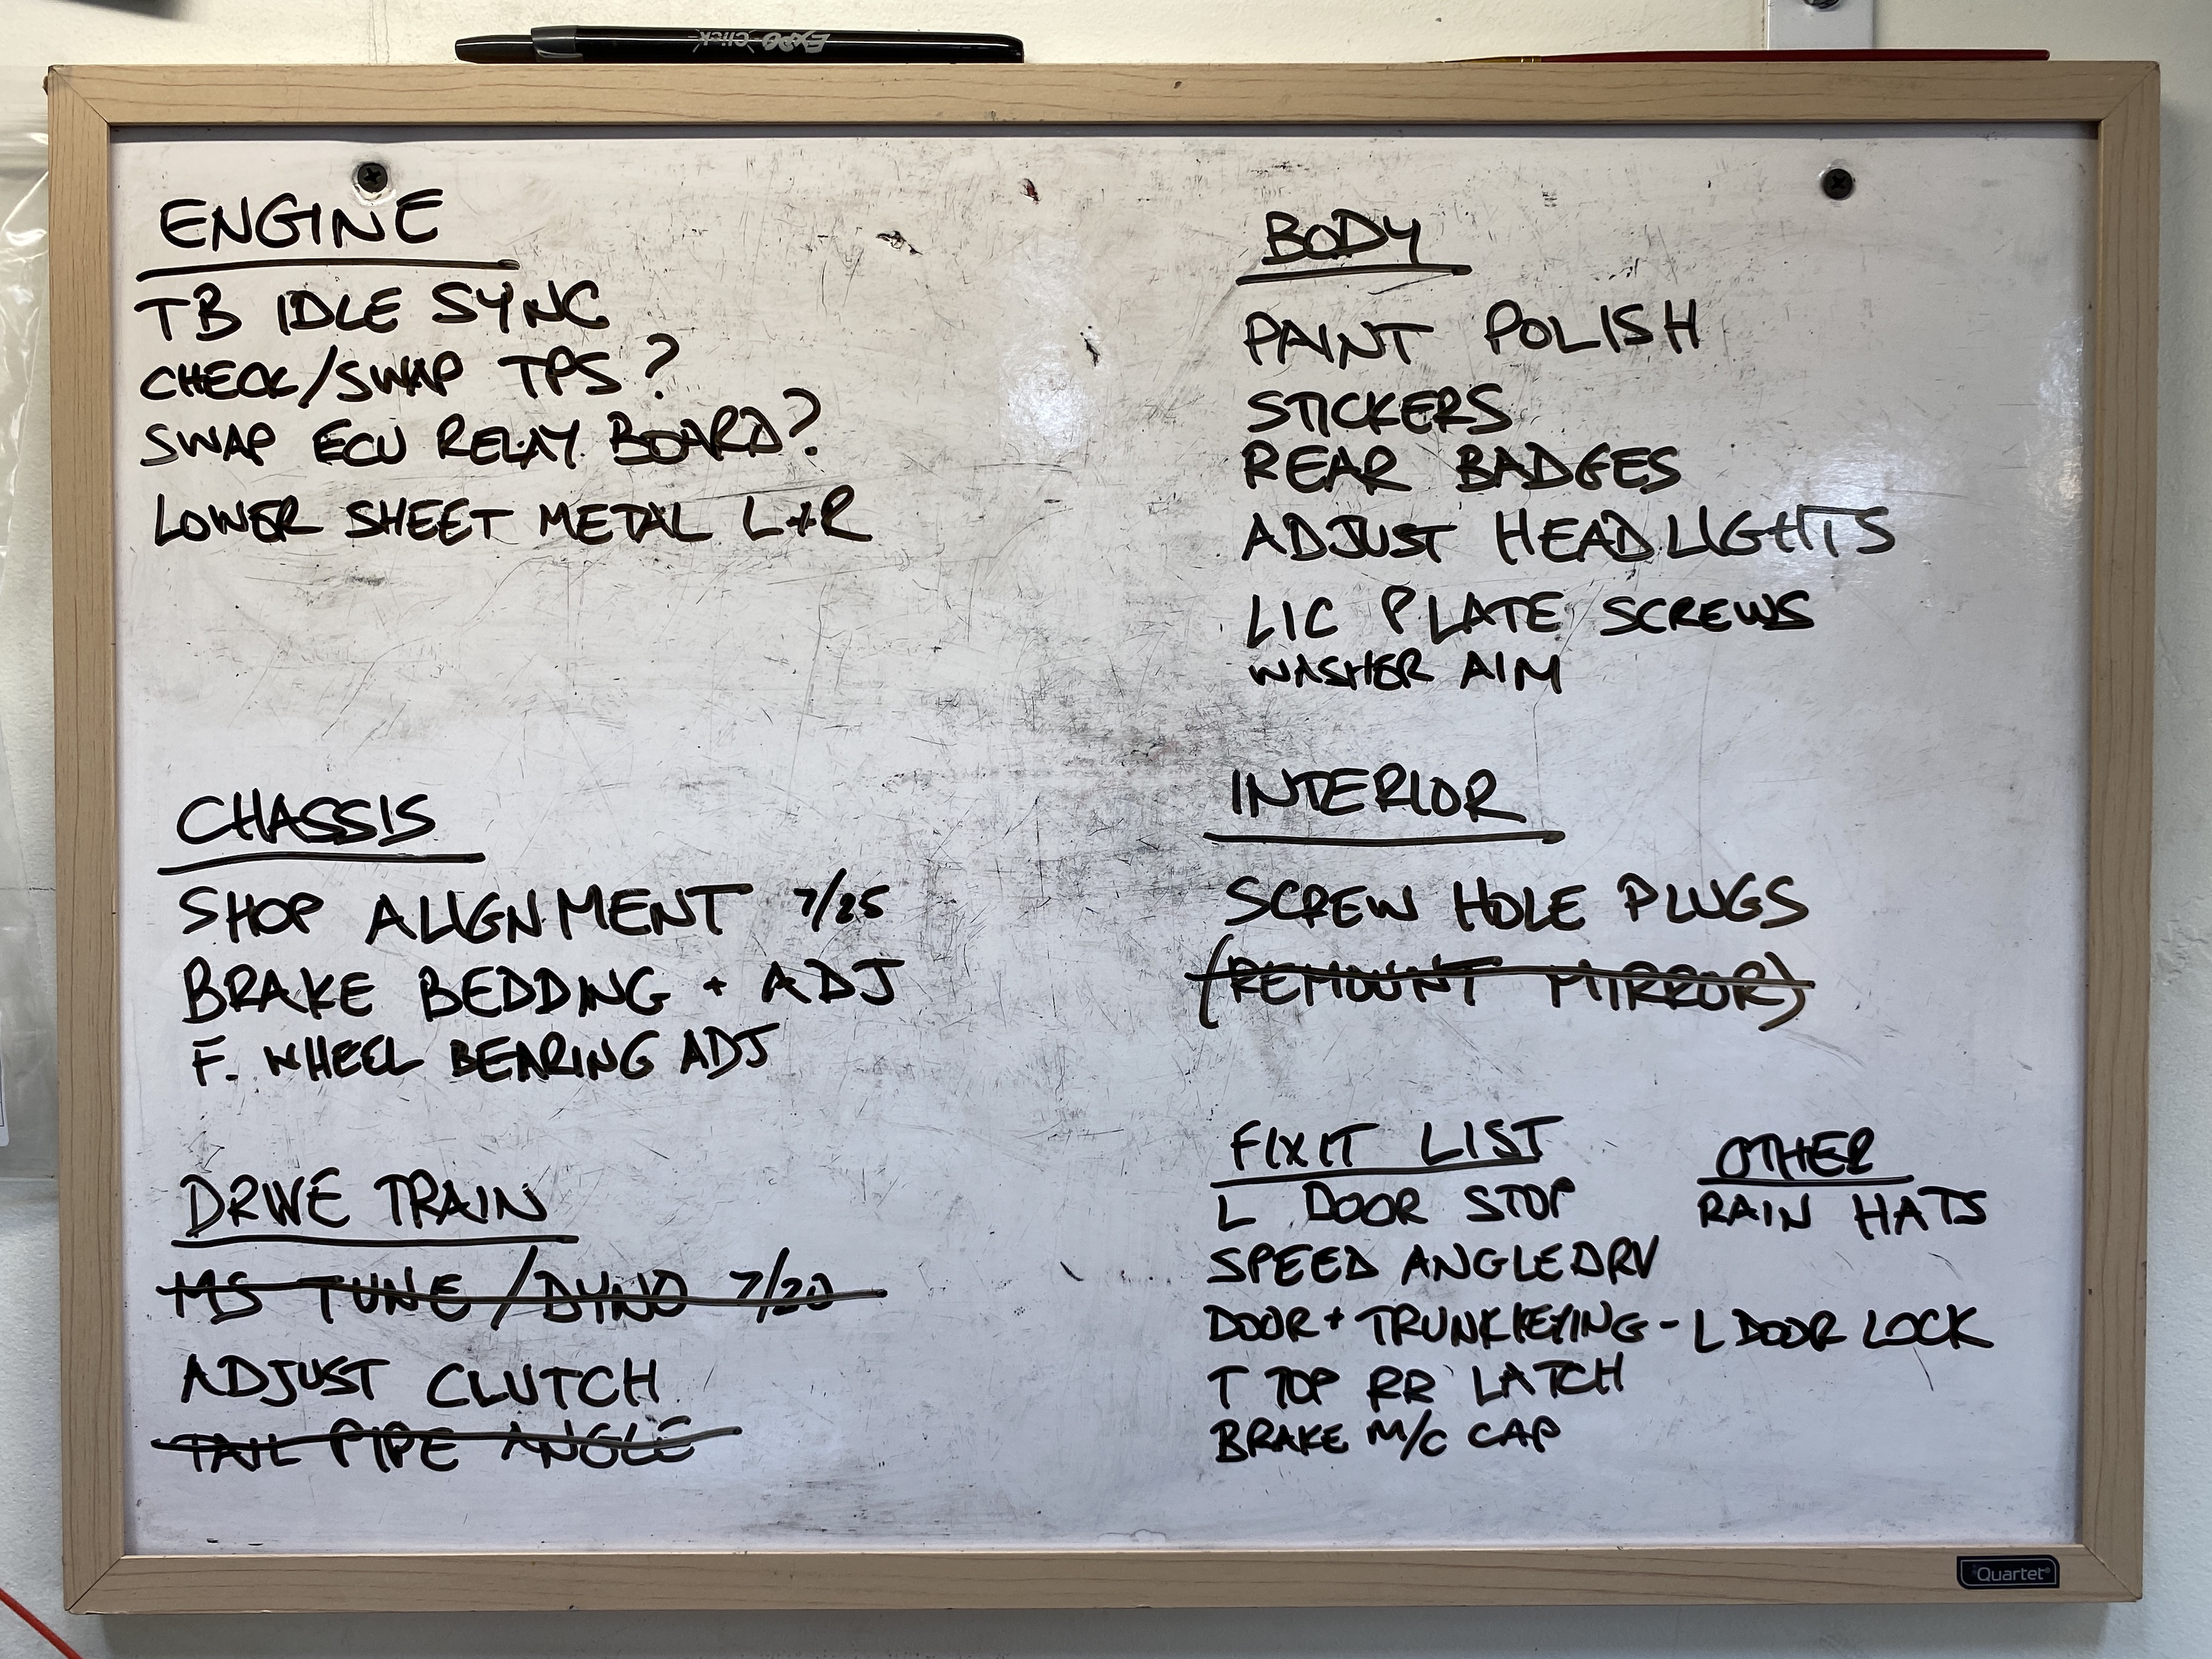 Expo Click
ENGINE
TB IDLE SYNC
CHECK/SWAP TPS?
SWAP ECU RELAY BOARD?
LOWER SHEET METAL L+R
CHASSIS
SHOP ALIGNMENT 7/25
BRAKE BEDDING + ADJ
F. WHEEL BEARING ADJ
DRIVE TRAIN
MS TUNE/DYNO 7/20
ADJUST CLUTCH
TAIL PIPE ANGLE
BODY
PAINT POLISH
STICKERS
REAR BADGES
ADJUST HEADLIGHTS
LIC PLATE SCREWS
WASHER AIM
INTERIOR
SCREW HOLE PLUGS
(REMOUNT MIRROR)
FIXIT LIST
L DOOR STOP
SPEED ANGLEDRV
DOOR + TRUNK KEYING - L DOOR LOCK
T TOP RR LATCH
BRAKE M/C CAP
OTHER
RAIN HATS
Quartet